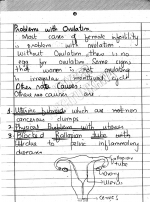 Problems with Ovulation
Most cases of female infertility
is problem with ovulation
Without Ovulation there is no
egg for ovulation. Some signs
that women is not ovulating
irregular menstrual cycle
Other Causes:
Other causes are
1. Uterine fibroids which are non
cancerous clumps
2. Physical Problems with uterus
3. Blocked Fallopian tube with
inflammatory
diseases
Fallopian
tube
Ovary
Uterus
Cervix